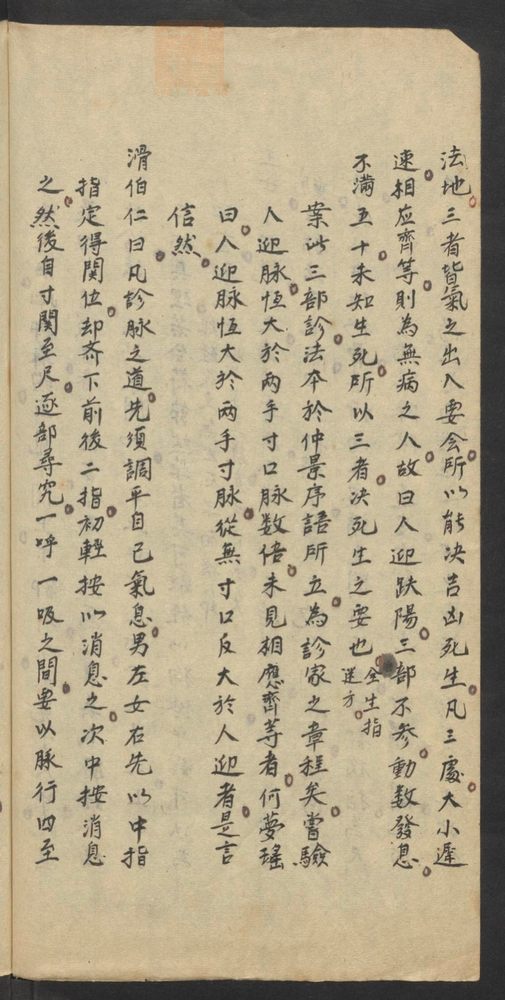 法地三者皆氣之出入要会所以能决吉凶死生凡三處大小遲
速相应齊等則為無病之人故曰人迎趺陽三部不參動数發息
不滿五十未知生死所以三者决死生之要也全生指迷方
案此三部診法本於仲景序語所立為診家之章程矣嘗驗
人迎脉恒大於兩手寸口脉数倍未見相應齊等者何夢瑤
曰人迎脉恆大於两手寸脉從無寸口反大於人迎者是言
信然
滑伯仁曰凡診脉之道先須調平自己氣息男左女右先以中指
指定得関位却齐下前後二指初輕按以消息之次中按消息
之然後自寸関至尺逐部尋究一呼一吸之間要以脉行四至